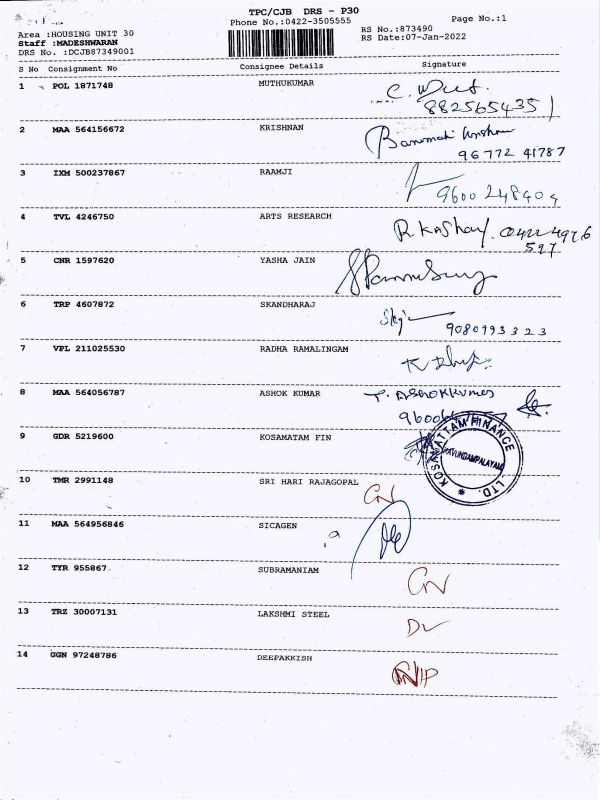 TPC/CJB DRS - P30
Phone No.:0422-3505555
Page No.:1
Area :HOUSING UNIT 30
Staff :MADESHWARAN
DRS No. :DCJB87349001
RS No.:873490
RS Date:07-Jan-2022
S No Consignment No Consignee Details Signature
1 POL 1871748 MUTHUKUMAR
882565435
2 MAA 564156672 KRISHNAN
96772 41787
3 IXM 500237867 RAAMJI
4 TVL 4246750 ARTS RESEARCH
0422 4976
597
5 CNR 1597620 YASHA JAIN
6 TRP 4607872 SKANDHARAJ
9080793323
7 VPL 211025530 RADHA RAMALINGAM
8 MAA 564056787 ASHOK KUMAR T. ASHOKKUMAR
9 GDR 5219600 KOSAMATAM FIN
KOSAMATTAM FINANCE LTD.
10 TMR 2991148 SRI HARI RAJAGOPAL
11 MAA 564956846 SICAGEN
12 TYR 955867 SUBRAMANIAM
13 TRZ 30007131 LAKSHMI STEEL
14 GGN 97248786 DEEPAKKISH